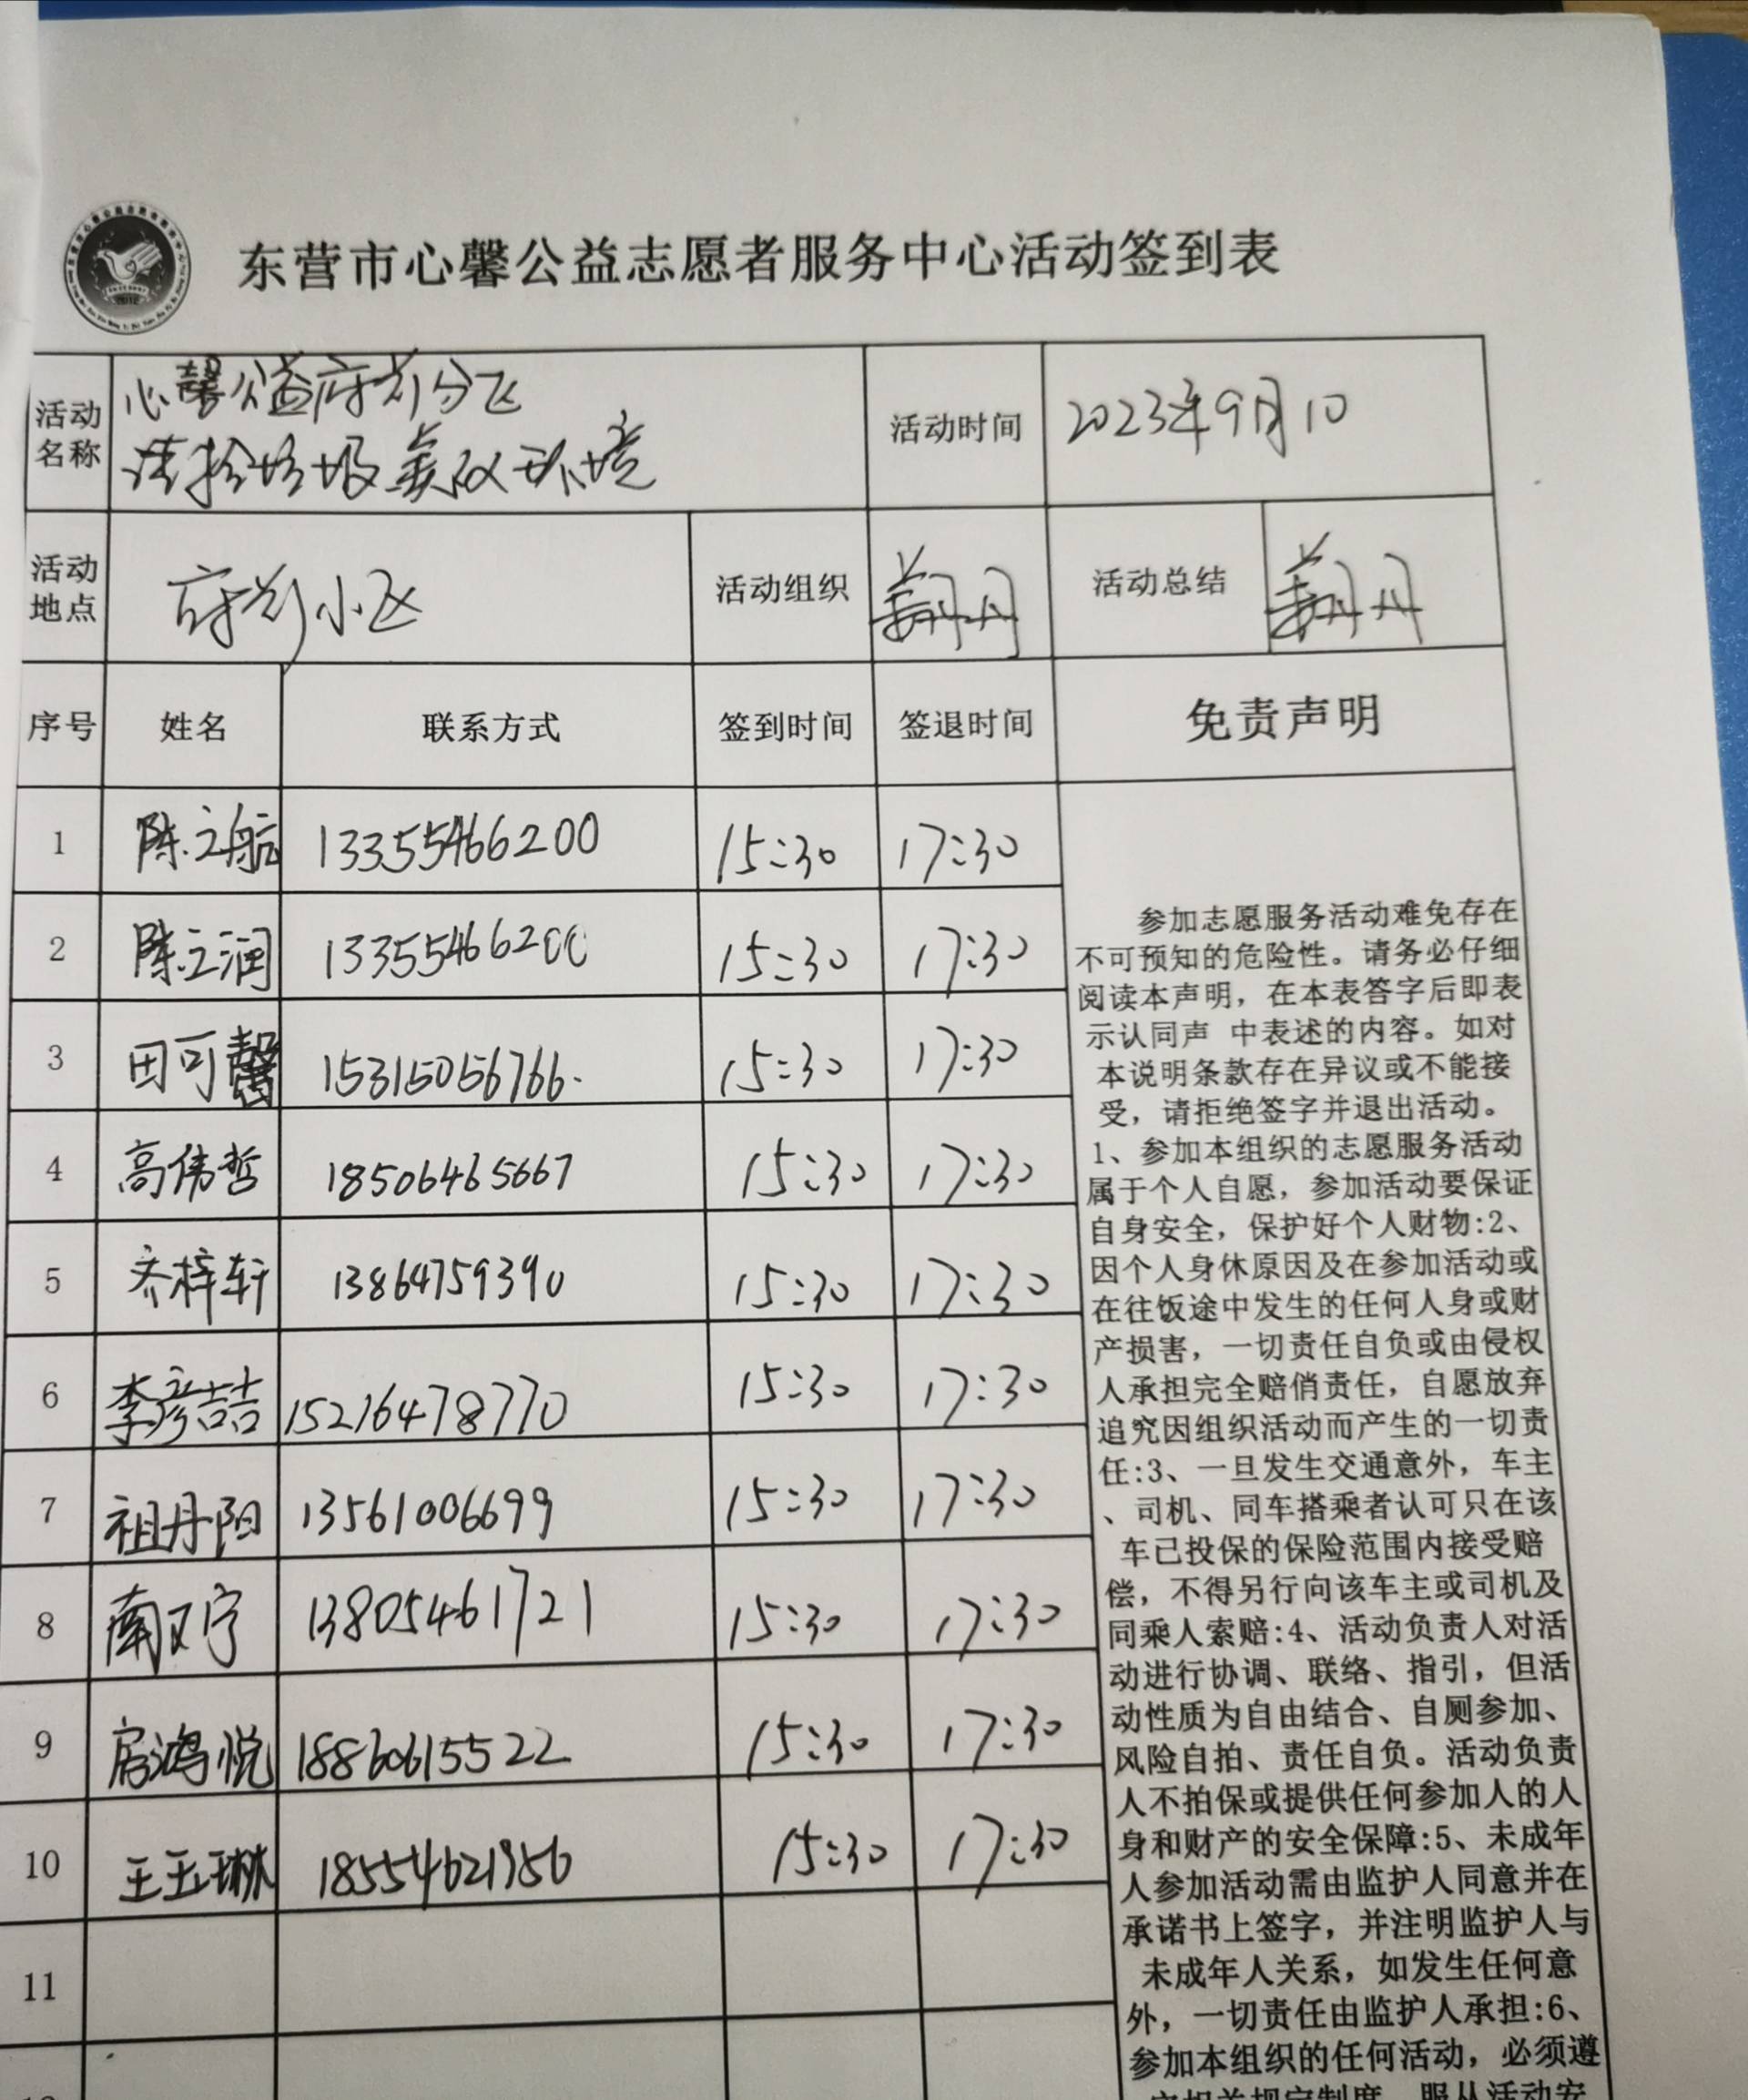 东营市心馨公益志愿者服务中心活动签到表
活动名称 心馨公益府前分区
清拾垃圾美化环境
活动时间 2023年9月10
活动地点 府前小区 活动组织 姜丹丹 活动总结 姜丹丹
序号 姓名 联系方式 签到时间 签退时间 免责声明
1 陈立航 13355466200 15:30 17:30
2 陈立润 13355466200 15:30 17:30
3 田可馨 15315056766. 15:30 17:30
4 高伟哲 18506465667 15:30 17:30
5 乔梓轩 13864759390 15:30 17:30
6 李彦喆 15216478770 15:30 17:30
7 祖丹阳 13561006699 15:30 17:30
8 南又宁 13805461721 15:30 17:30
9 房鸿悦 18860615522 15:30 17:30
10 王玉琳 15:30 17:30
11
参加志愿服务活动难免存在
不可预知的危险性。请务必仔细
阅读本声明，在本表答字后即表
示认同声 中表述的内容。如对
本说明条款存在异议或不能接
受，请拒绝签字并退出活动。
1、参加本组织的志愿服务活动
属于个人自愿，参加活动要保证
自身安全，保护好个人财物:2、
因个人身休原因及在参加活动或
在往饭途中发生的任何人身或财
产损害，一切责任自负或由侵权
人承担完全赔俏责任，自愿放弃
追究因组织活动而产生的一切责
任:3、一旦发生交通意外，车主
、司机、同车搭乘者认可只在该
车已投保的保险范围内接受赔
偿，不得另行向该车主或司机及
同乘人索赔:4、活动负责人对活
动进行协调、联络、指引，但活
动性质为自由结合、自厕参加、
风险自拍、责任自负。活动负责
人不拍保或提供任何参加人的人
身和财产的安全保障:5、未成年
人参加活动需由监护人同意并在
承诺书上签字，并注明监护人与
未成年人关系，如发生任何意
外，一切责任由监护人承担:6、
参加本组织的任何活动，必须遵